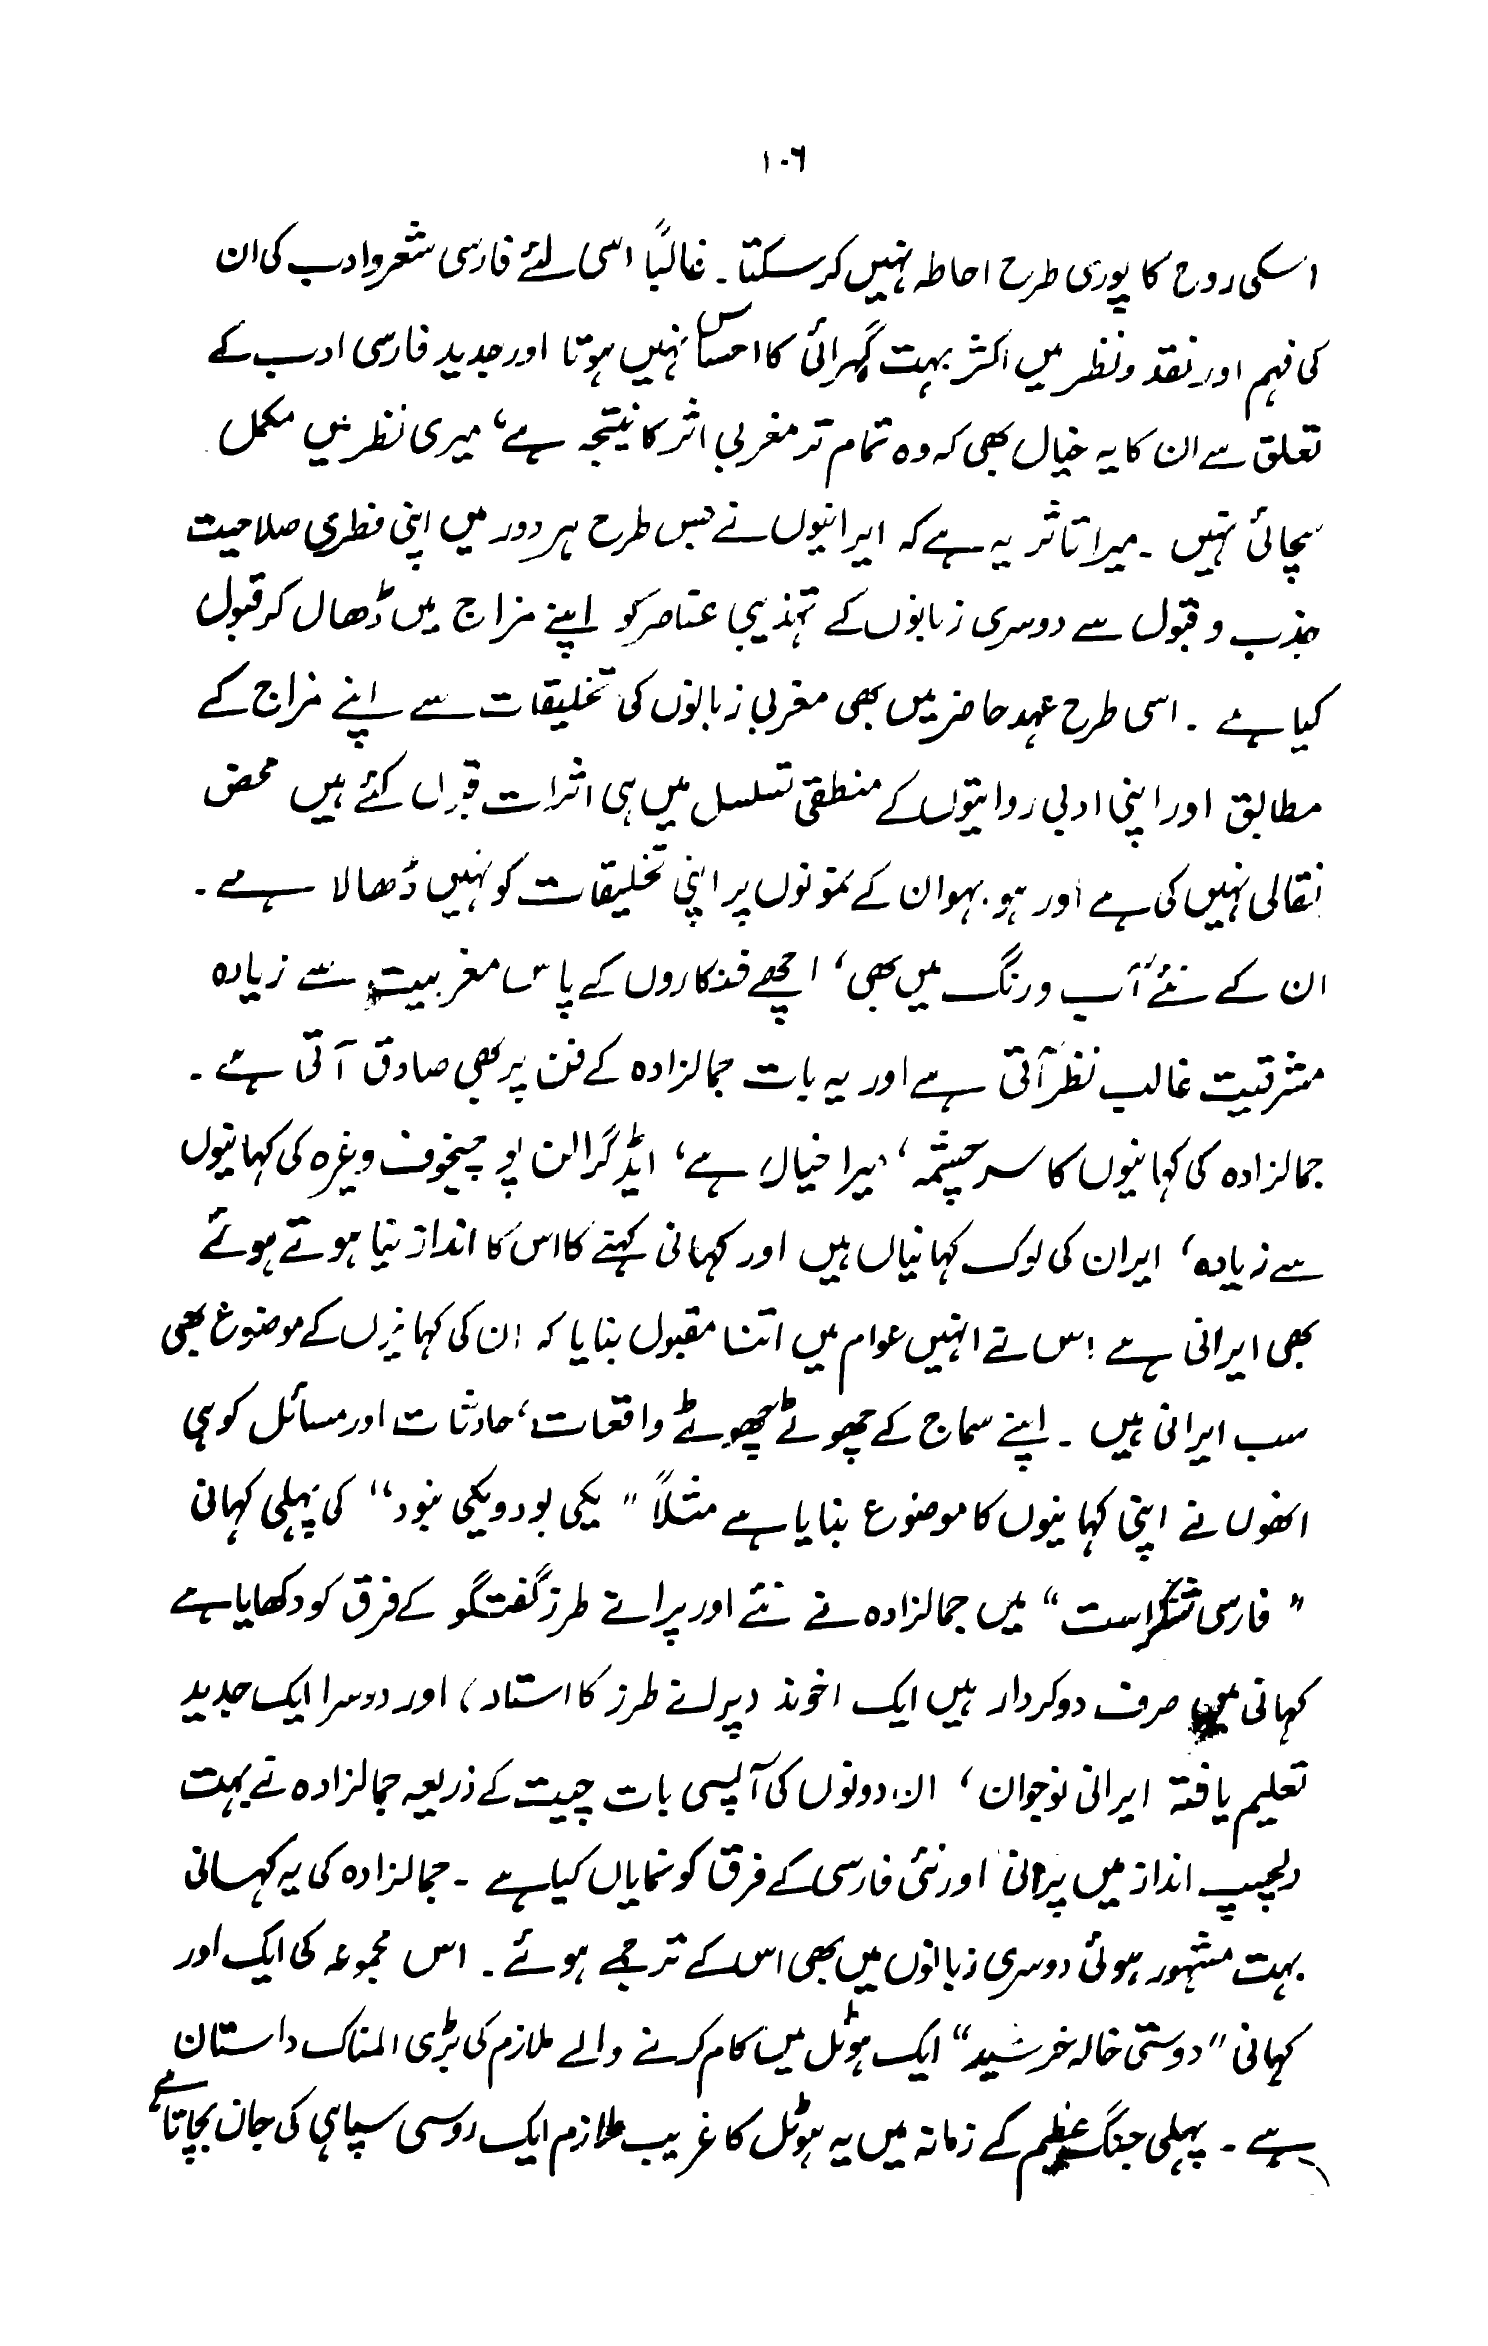 ۱۰۶
اسکی روح کا پوری طرح احاطہ نہیں کرسکتا۔ غالباً اسی لئے فارسی شعروادب کی ان
کی فہم اور نقد ونظر میں اکثر بہت گہرائی کا احساس نہیں ہوتا اور جدید فارسی ادب کے
تعلق سے ان کا یہ خیال بھی کہ وہ تمام تر مغربی اثر کا نتیجہ ہے، میری نظر میں مکمل
سچائی نہیں ۔ میرا تاثر یہ ہے کہ ایرانیوں نے جس طرح ہر دور میں اپنی فطری صلاحیت
جذب و قبول سے دوسری زبانوں کے تہذیبی عناصر کو اپنے مزاج میں ڈھال کر قبول
کیا ہے ۔ اسی طرح عہد حاضر میں بھی مغربی زبانوں کی تخلیقات سے اپنے مزاج کے
مطابق اور اپنی ادبی روایتوں کے منطقی تسلسل میں ہی اثرات قبول کئے ہیں محض
نقالی نہیں کی ہے اور ہو بہو ان کے نمونوں پر اپنی تخلیقات کو نہیں ڈھالا ہے ۔
ان کے نئے آب و رنگ میں بھی، اچھے فنکاروں کے پاس مغربیت سے زیادہ
مشرقیت غالب نظر آتی ہے اور یہ بات جمالزادہ کے فن پر بھی صادق آتی ہے ۔
جمالزادہ کی کہانیوں کا سرچشمہ، میرا خیال ہے، ایڈگرالن پو چیخوف وغیرہ کی کہانیوں
سے زیادہ، ایران کی لوک کہانیاں ہیں اور کہانی کہنے کا اس کا انداز نیا ہوتے ہوئے
بھی ایرانی ہے اس نے انہیں عوام میں اتنا مقبول بنایا کہ ان کی کہانیوں کے موضوع بھی
سب ایرانی ہیں ۔ اپنے سماج کے چھوٹے چھوٹے واقعات، حادثات اور مسائل کو ہی
انھوں نے اپنی کہانیوں کا موضوع بنایا ہے مثلاً “یکی بود ویکی نبود” کی پہلی کہانی
“فارسی شکر است” میں جمالزادہ نے نئے اور پرانے طرز گفتگو کے فرق کو دکھایا ہے
کہانی میں صرف دو کردار ہیں ایک اخوند (پرانے طرز کا استاد) اور دوسرا ایک جدید
تعلیم یافتہ ایرانی نوجوان، ان دونوں کی آپسی بات چیت کے ذریعہ جمالزادہ نے بہت
دلچسپ انداز میں پرانی اور نئی فارسی کے فرق کو نمایاں کیا ہے ۔ جمالزادہ کی یہ کہانی
بہت مشہور ہوئی دوسری زبانوں میں بھی اس کے ترجمے ہوئے ۔ اس مجموعہ کی ایک اور
کہانی “دوستی خالہ خرسید” ایک ہوٹل میں کام کرنے والے ملازم کی بڑی المناک داستان
ہے ۔ پہلی جنگ عظیم کے زمانہ میں یہ ہوٹل کا غریب ملازم ایک روسی سپاہی کی جان بچاتا ہے